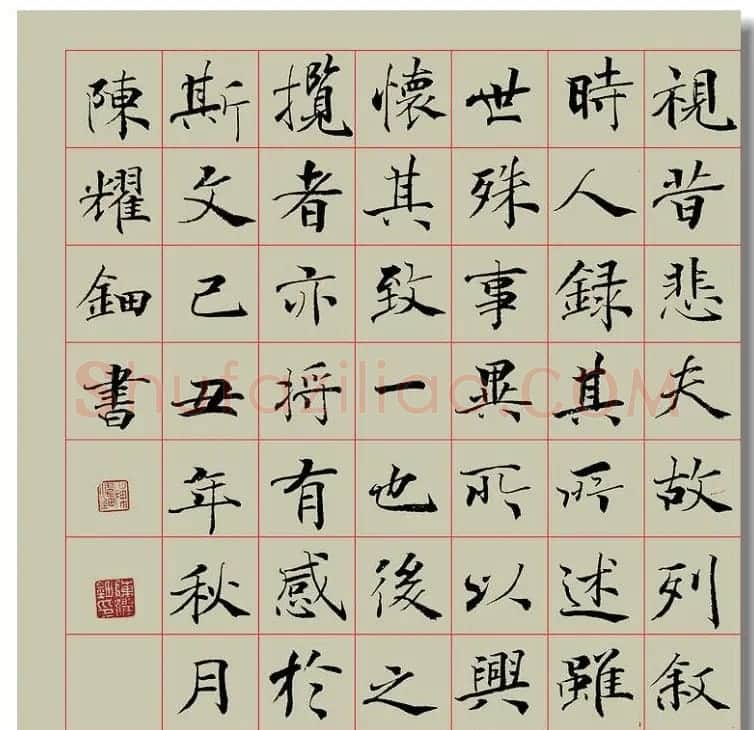 視昔悲夫故列叙
時人録其所述雖
世殊事異所以興
懷其致一也後之
攬者亦将有感於
斯文己丑年秋月
陳耀鈿書
Shufaziliao.COM